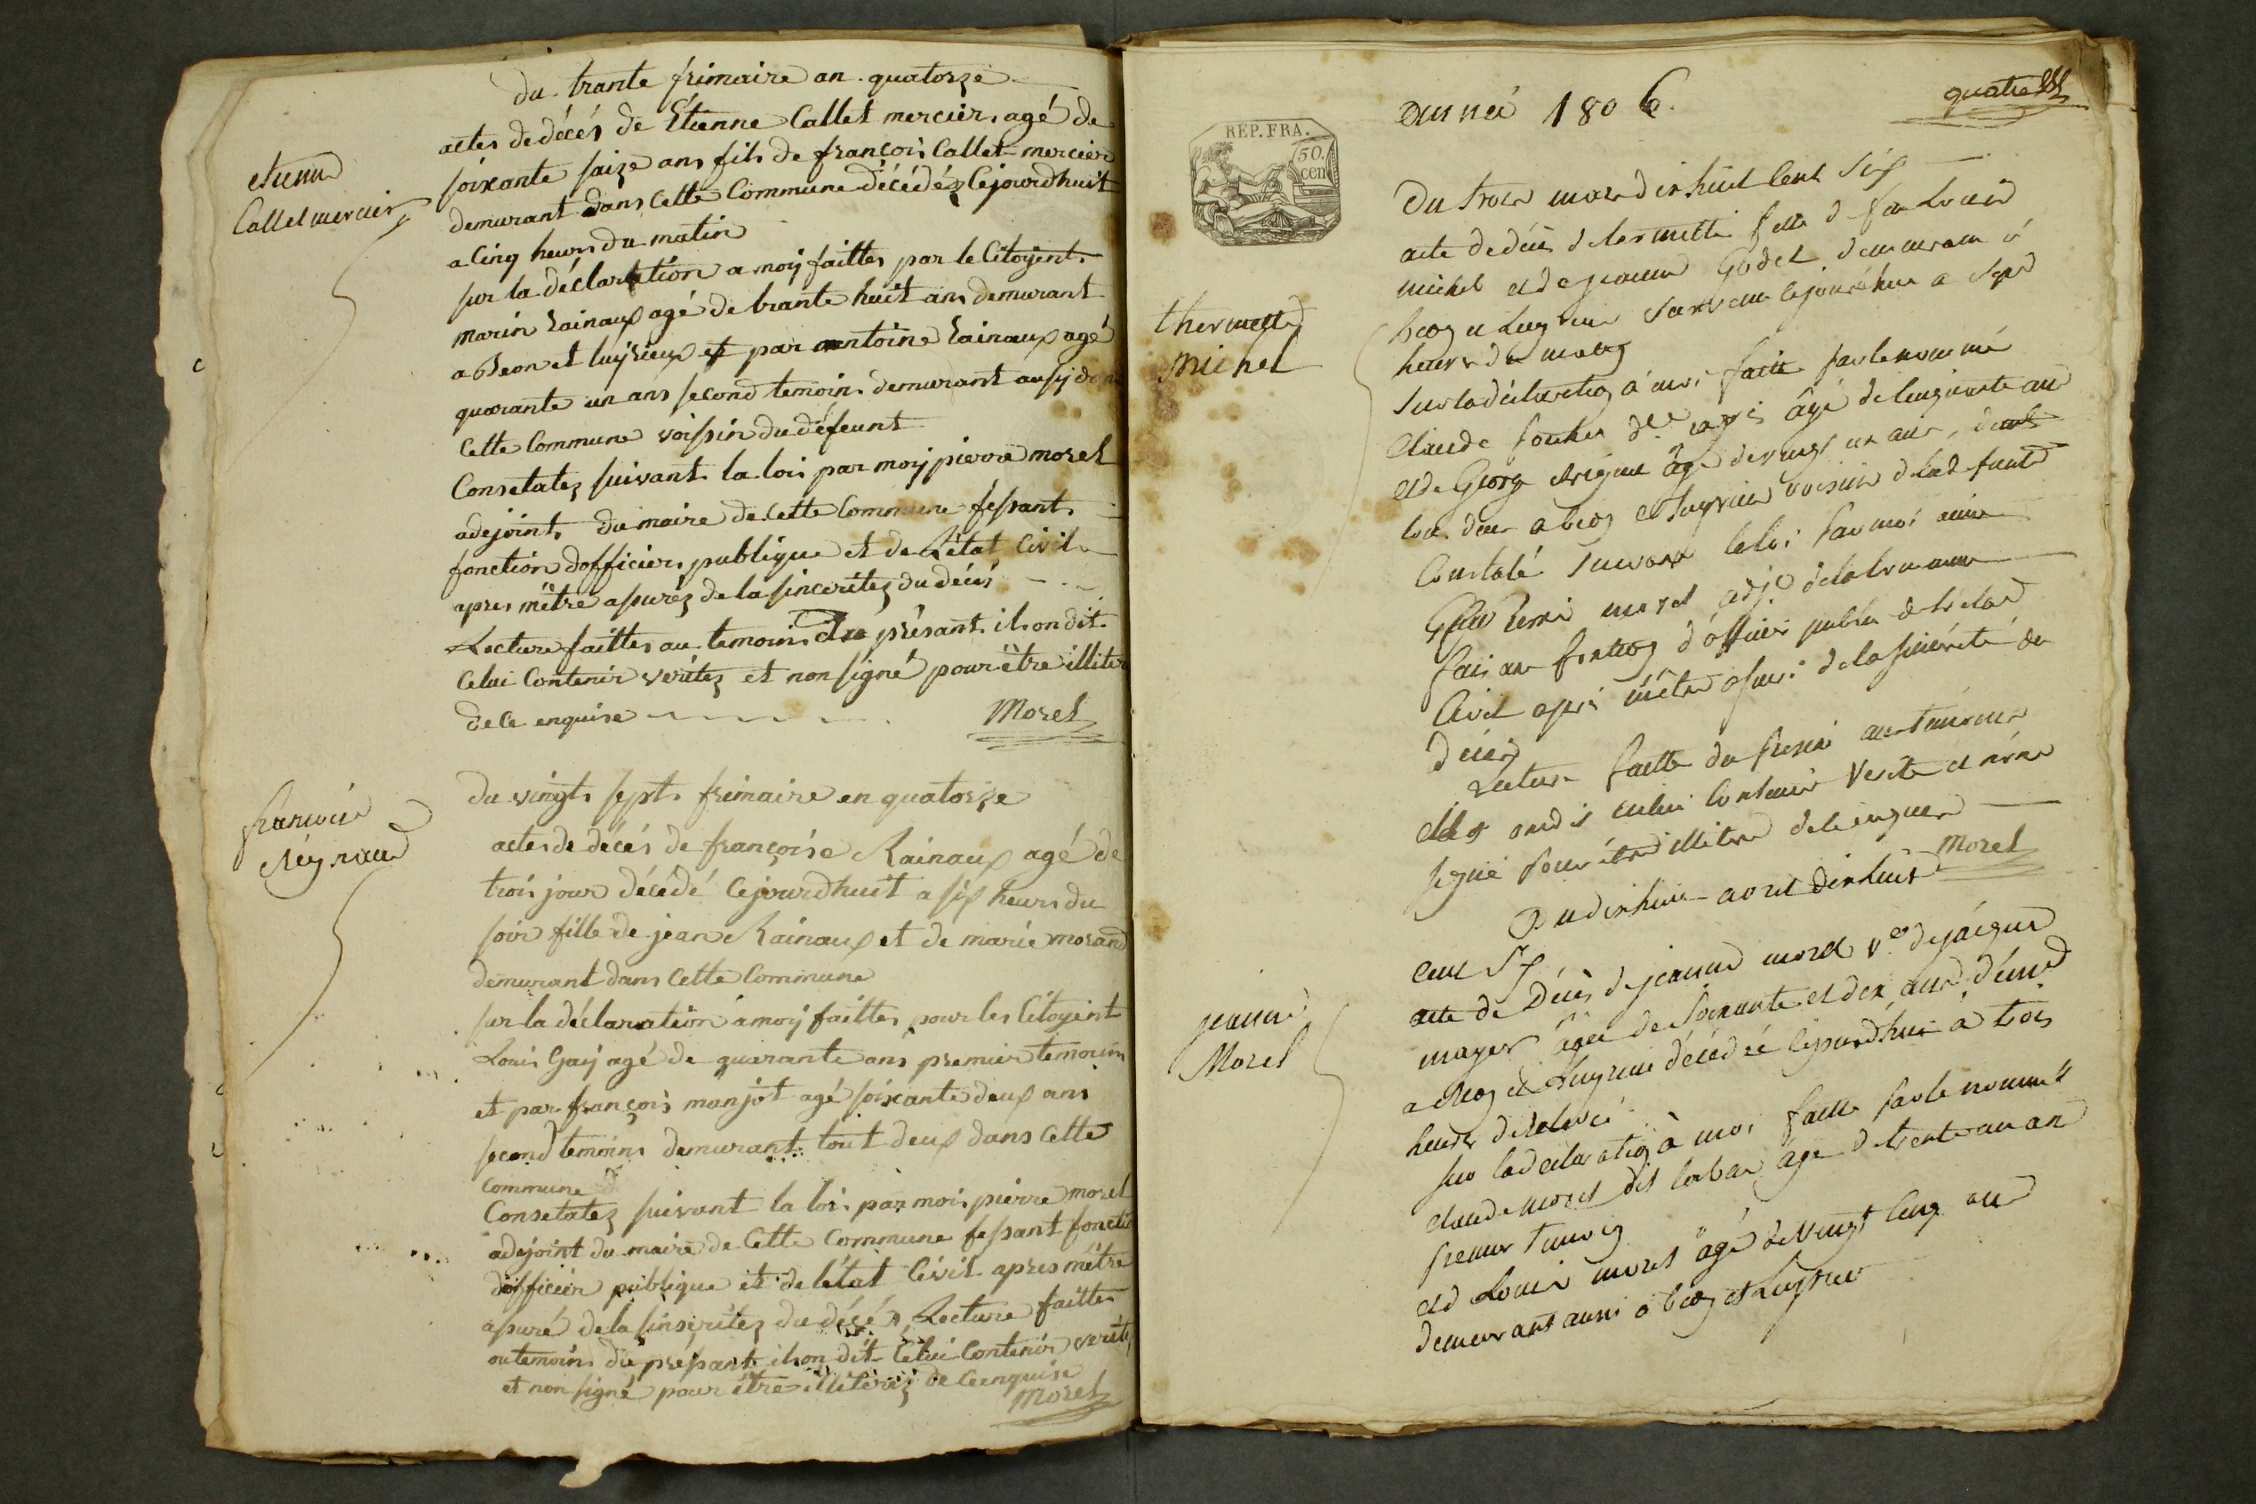 du trante frimaire an quatorze
actes de décés de Étienne Callet mercier agé de
soixante saize ans fils de françois Callet mercier
demurant dans cette Commune décédéz Cejourdhuit
a Cinq heurs du matin
sur la déclaration a moÿ faittes par le Citoÿent
marin Rainaux agé de trante huit ans demurant
a Beon et luÿrieux et par antoine Rainaux agé
quarante un ans second temoins demurant ausÿ dans
Cette Commune voissin du défeunt
Consetatez suivant la loi par moÿ pierre morel
adejoint du maire de Cette Commune fessant
fonction dofficier publique et de Létat Civil
apres mêtre asuréz de la sinceritez du décés
Lecture faittes au temoins du présant ils on dit
Celui Contenir veritez et non signé pour être illiter
de ce enquise
Morel
etienne
Callet mercier
francoise
Reynaud
du vingt sept frimaire en quatorze
actes de décés de françoise Rainaux agé de
trois jour décédé Cejourdhuit a six heurs du
soir fille de jean Rainaux et de marie morand
demurant dans Cette Commune
sur la déclaration a moÿ faittes pour les Citoÿent
Louis Gaÿ agé de quarante ans premier temoins
et par françois monjot agé soixante deux ans
second temoins demurant tout deux dans Cette
Commune
Consetatez suivant la loi par moi pierre morel
adejoint du maire de Cette Commune fessant foncti
dofficier publique et de létat Civil apres mêtre
asuré de la sinseritez du décés, Lecture faittes
au temoins du présant ils on dit Celui Contenir verité
et non signé pour être illiterez de Ce enquise
Morel
année 1806.
quatre
REP. FRA.
50.
cen
thermette
Michel
Du trois mars dix huit Cent Six
acte de décès de termette fille de feu Louis
michel et de jeanne Godet demeurant à
beog et Luyrieu cejourdhui a Sept
heures du matig
Sur la déclaratig à moi faitte par le nommé
Claude agé de Cinquante ans
et de George âgé de vingt un ans,
tou deux a beog et Luyrieu voisin de la defunte
Constaté suivant la loi par moi
morel adj. de la Commune
faisant fontiog d'officier public de l'etat
Civil après mêtre asuré de la sincérité du
décès
Lecture faitte du présent aux temoins
on dit celui Contenir Verité et
signé pour être illitere de ce enquis
Morel
Jeanne
Morel
Du dix huit avril dix huit
cent Six
acte de Décès de jeanne morel v.e de jacque
mayer agée de Soixante et dix ans
a Beog et Luyrieu décédée cejourdhui à trois
heures
sur la déclaratig à moi faitte par le nommé
claude morel dit âgé de trente un an
premier temoig
et de Louis morel âgé de vingt Cinq an
demeurant aussi à beog et Luyrieu